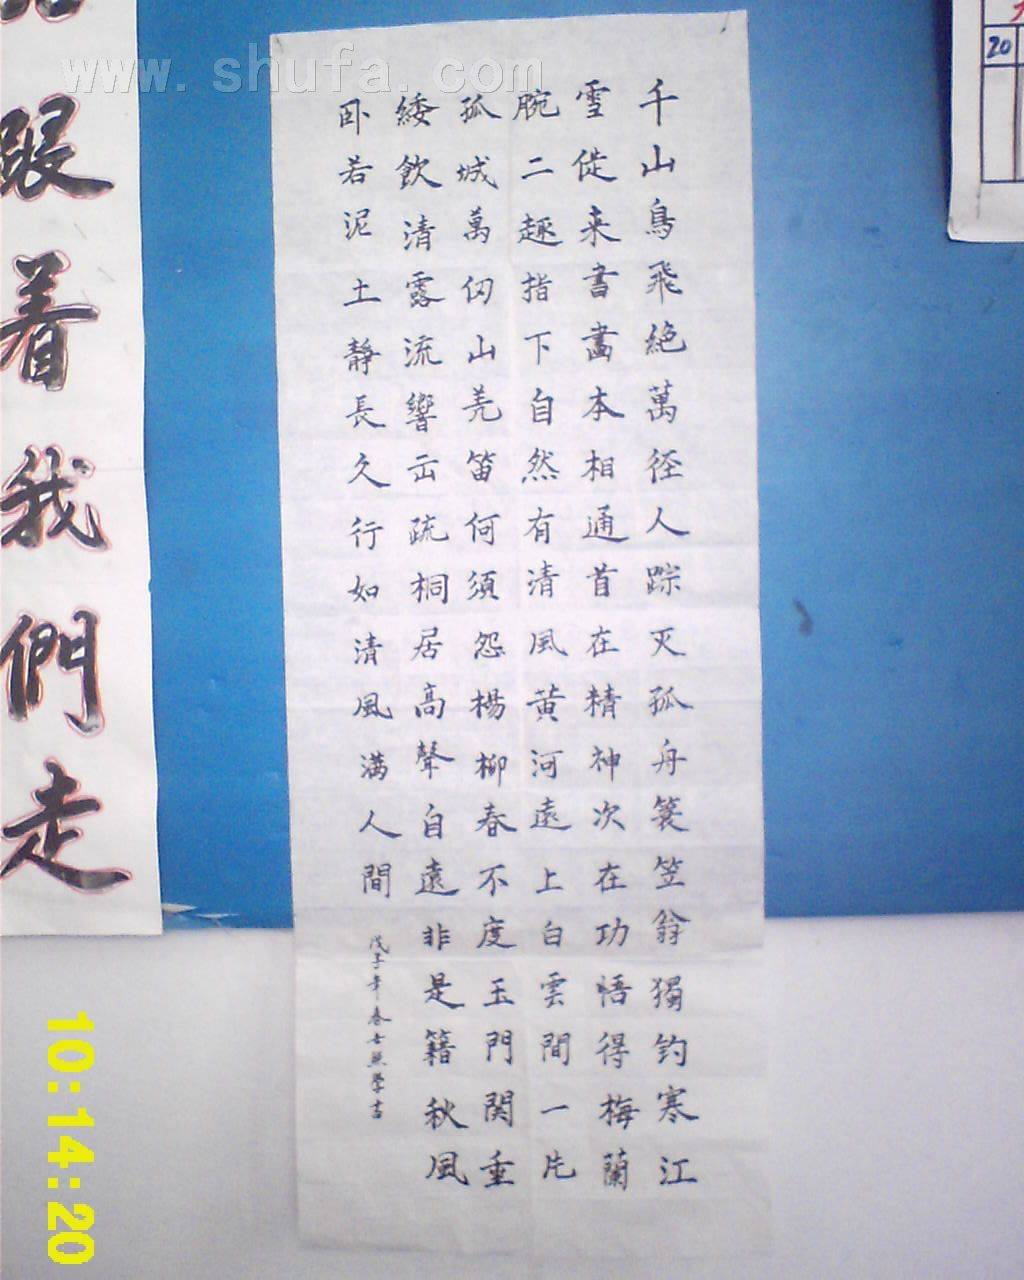 千山鳥飛絶萬径人踪灭孤舟簑笠翁獨钓寒江
雪従来書畵本相通首在精神次在功悟得梅蘭
腕二趣指下自然有清風黄河遠上白雲間一片
孤城萬仞山羌笛何須怨楊柳春不度玉門関重
緌飲清露流響出疏桐居高聲自遠非是籍秋風
卧若泥土靜長久行如清風满人間
戊子年春
跟着我們走
www.shufa.com
20
10:14:20